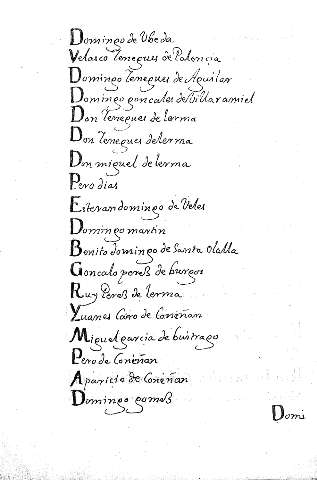 Domingo de Vbeda
Velasco Tenegues de Palençia
Domingo Tenegues de Aguilar
Domingo goncales de Villaramiel
Don Tenegues de lerma
Don Tenegues de lerma
Don miguel de lerma
Pero dias
Estevan domingo de Veles
Domingo martin
Benito domingo de Santa Olalla
Goncalo peres de burgos
Ruy Peres de lerma
Yuanes Caro de Coniñan
Miguel garcia de buitrago
Pero de Coniñan
Aparicio de Coniñan
Domingo gomes
Domi